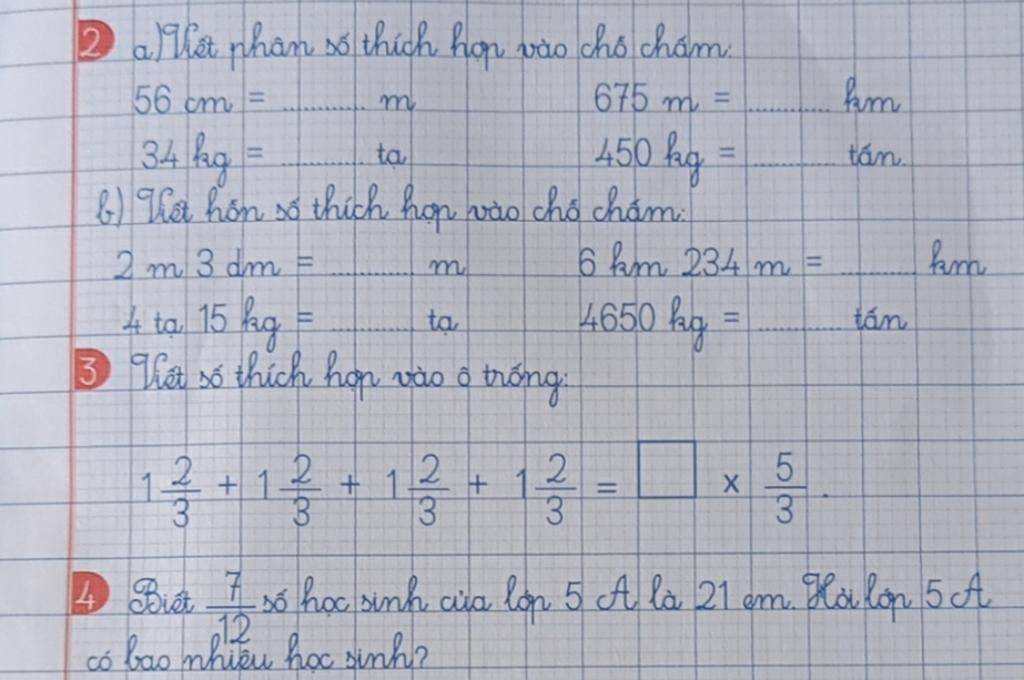 2 a) Viết phân số thích hợp vào chỗ chấm:
56 cm = ............ m 675 m = ............ km
34 kg = ............ tạ 450 kg = ............ tấn.
b) Viết hỗn số thích hợp vào chỗ chấm:
2 m 3 dm = ............ m 6 km 234 m = ............ km
4 tạ 15 kg = ............ tạ 4650 kg = ............ tấn
3 Viết số thích hợp vào ô trống:
1 2/3 + 1 2/3 + 1 2/3 + 1 2/3 = □ x 5/3 .
4 Biết 7/12 số học sinh của lớp 5 A là 21 em. Hỏi lớp 5 A
có bao nhiêu học sinh?